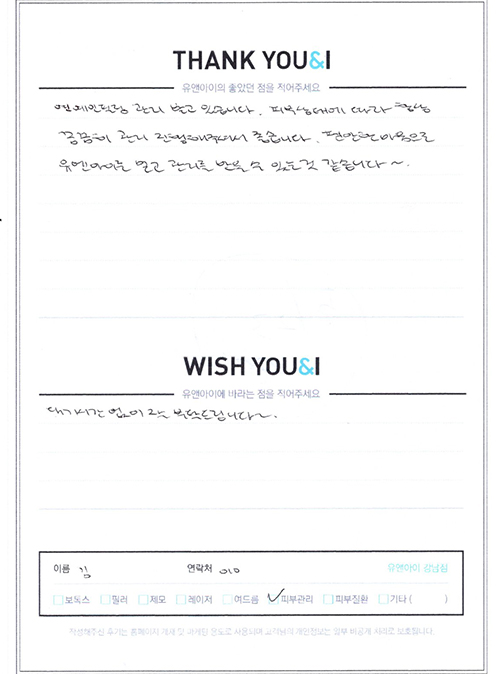 THANK YOU&I
유앤아이의 좋았던 점을 적어주세요
관리 받고 있습니다. 피부상태에 따라 항상
꼼꼼히 관리 진행해주셔서 좋습니다. 편안한 마음으로
유앤아이는 믿고 관리를 받을 수 있는것 같습니다~.
WISH YOU&I
유앤아이에 바라는 점을 적어주세요
대기시간 없이 부탁드립니다~.
이름 김 연락처 010 유앤아이 강남점
보톡스 필러 제모 레이저 여드름 피부관리 피부질환 기타 ( )
작성해주신 후기는 홈페이지 게재 및 마케팅 용도로 사용되며 고객님의 개인정보는 외부 비공개 자료로 보호됩니다.